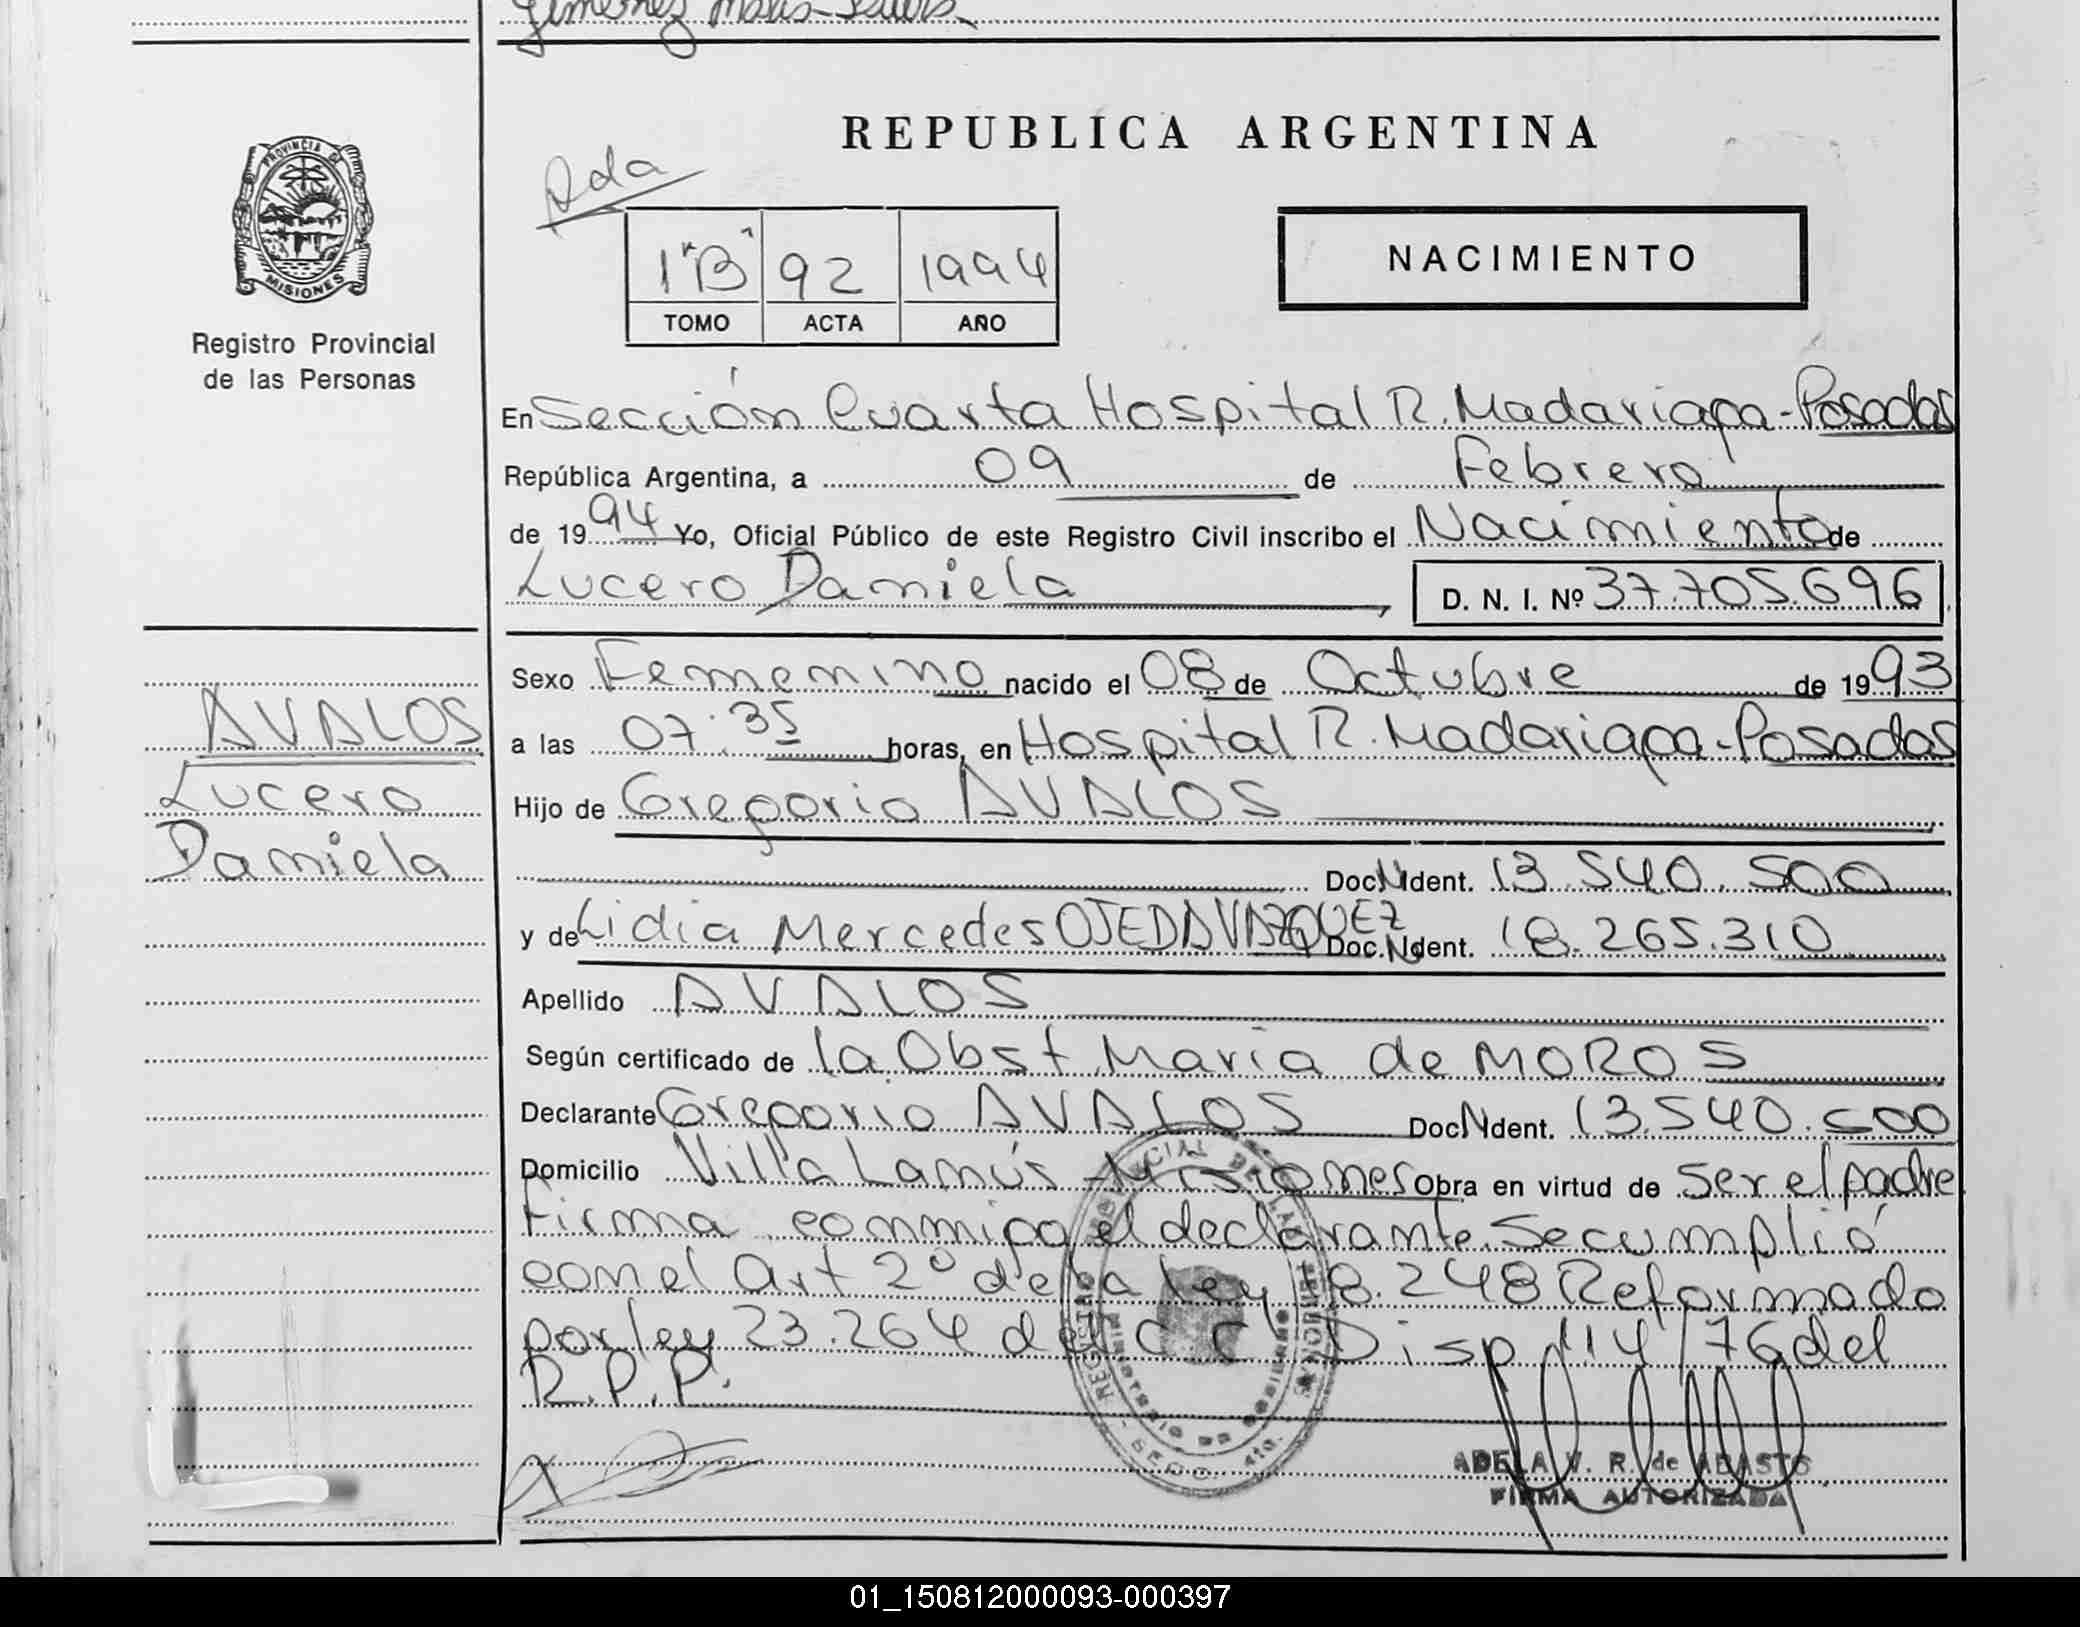 Jimenez
REPUBLICA ARGENTINA
PROVINCIA DE
MISIONES
Registro Provincial
de las Personas
1 "B" 92 1994
TOMO ACTA AÑO
NACIMIENTO
En Sección Cuarta Hospital R. Madariaga - Posadas
República Argentina, a 09 de Febrero
de 1994 Yo, Oficial Público de este Registro Civil inscribo el Nacimiento de
Lucero Daniela, D. N. I. Nº 37.705.696
Sexo Femenino nacido el 08 de Octubre de 1993
AVALOS
Lucero
Daniela
a las 07:35 horas, en Hospital R. Madariaga - Posadas
Hijo de Gregorio AVALOS
Doc. Ident. 13.540.500
y de Lidia Mercedes OJEDA VAZQUEZ Doc. Ident. 18.265.310
Apellido AVALOS
Según certificado de la Obst. Maria de MOROS
Declarante Gregorio AVALOS Doc. Ident. 13.540.500
Domicilio Villa Lanús - Misiones Obra en virtud de ser el padre
Firma conmigo el declarante. Se cumplió
con el Art 2º de la ley 18.248 Reformado
por ley 23.264 del C C Disp 114/76 del
R.P.P.
ADELA V. R. de ABASTO
FIRMA AUTORIZADA
01_150812000093-000397